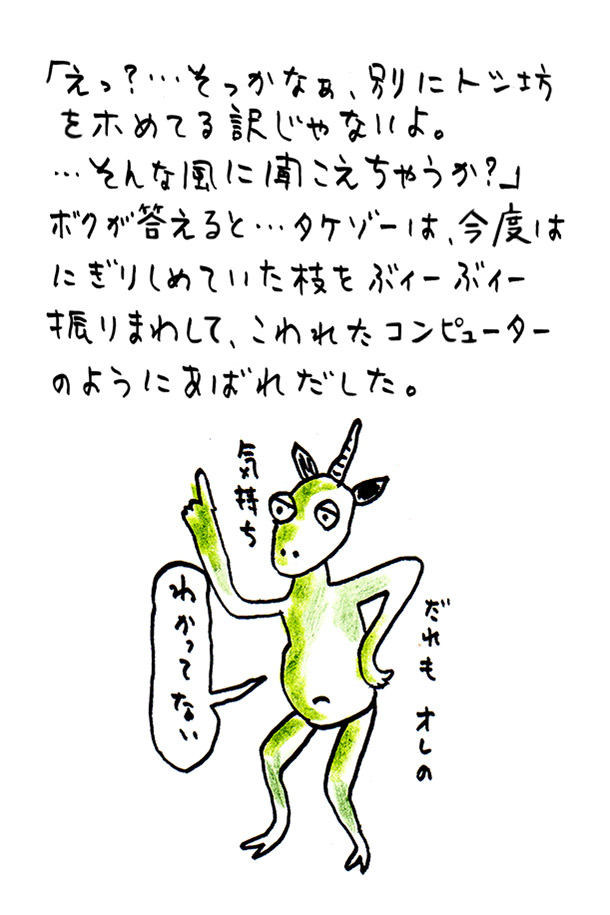 「えっ?…そっかなぁ、別にトン坊
をホめてる訳じゃないよ。
…そんな風に聞こえちゃうか?」
ボクが答えると…タケゾーは、今度は
にぎりしめていた枝をぶィーぶィー
振りまわして、こわれたコンピューター
のようにあばれだした。
だれも オレの
気持ち
わかってない